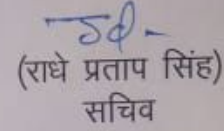 (राधे प्रताप सिंह)
सचिव